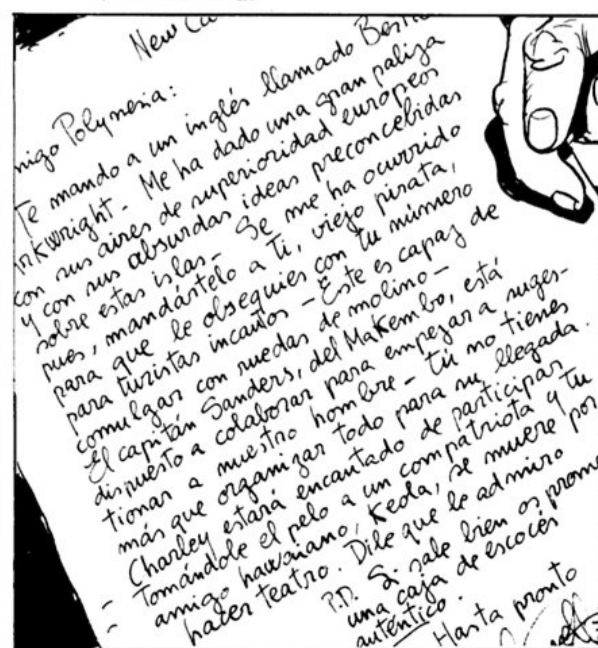 New Ca
migo Polynesia:
Te mando a un inglés llamado Bertie
Arkwright - Me ha dado una gran paliza
con sus aires de superioridad europeos
y con sus absurdas ideas preconcebidas
sobre estas islas - Se me ha ocurrido
pues, mandártelo a ti, viejo pirata,
para que le obsequies con tu número
para turistas incautos - Este es capaz de
comulgar con ruedas de molino -
El capitán Sanders, del Makembo, está
dispuesto a colaborar para empezar a suges-
tionar a nuestro hombre - tú no tienes
más que organizar todo para su llegada.
- Charley estará encantado de participar
- Tomándole el pelo a un compatriota y tu
amigo hawaiano, Keola, se muere por
hacer teatro. Dile que le admiro
P.D. Si sale bien os prome
una caja de escocés
auténtico.
Hasta pronto